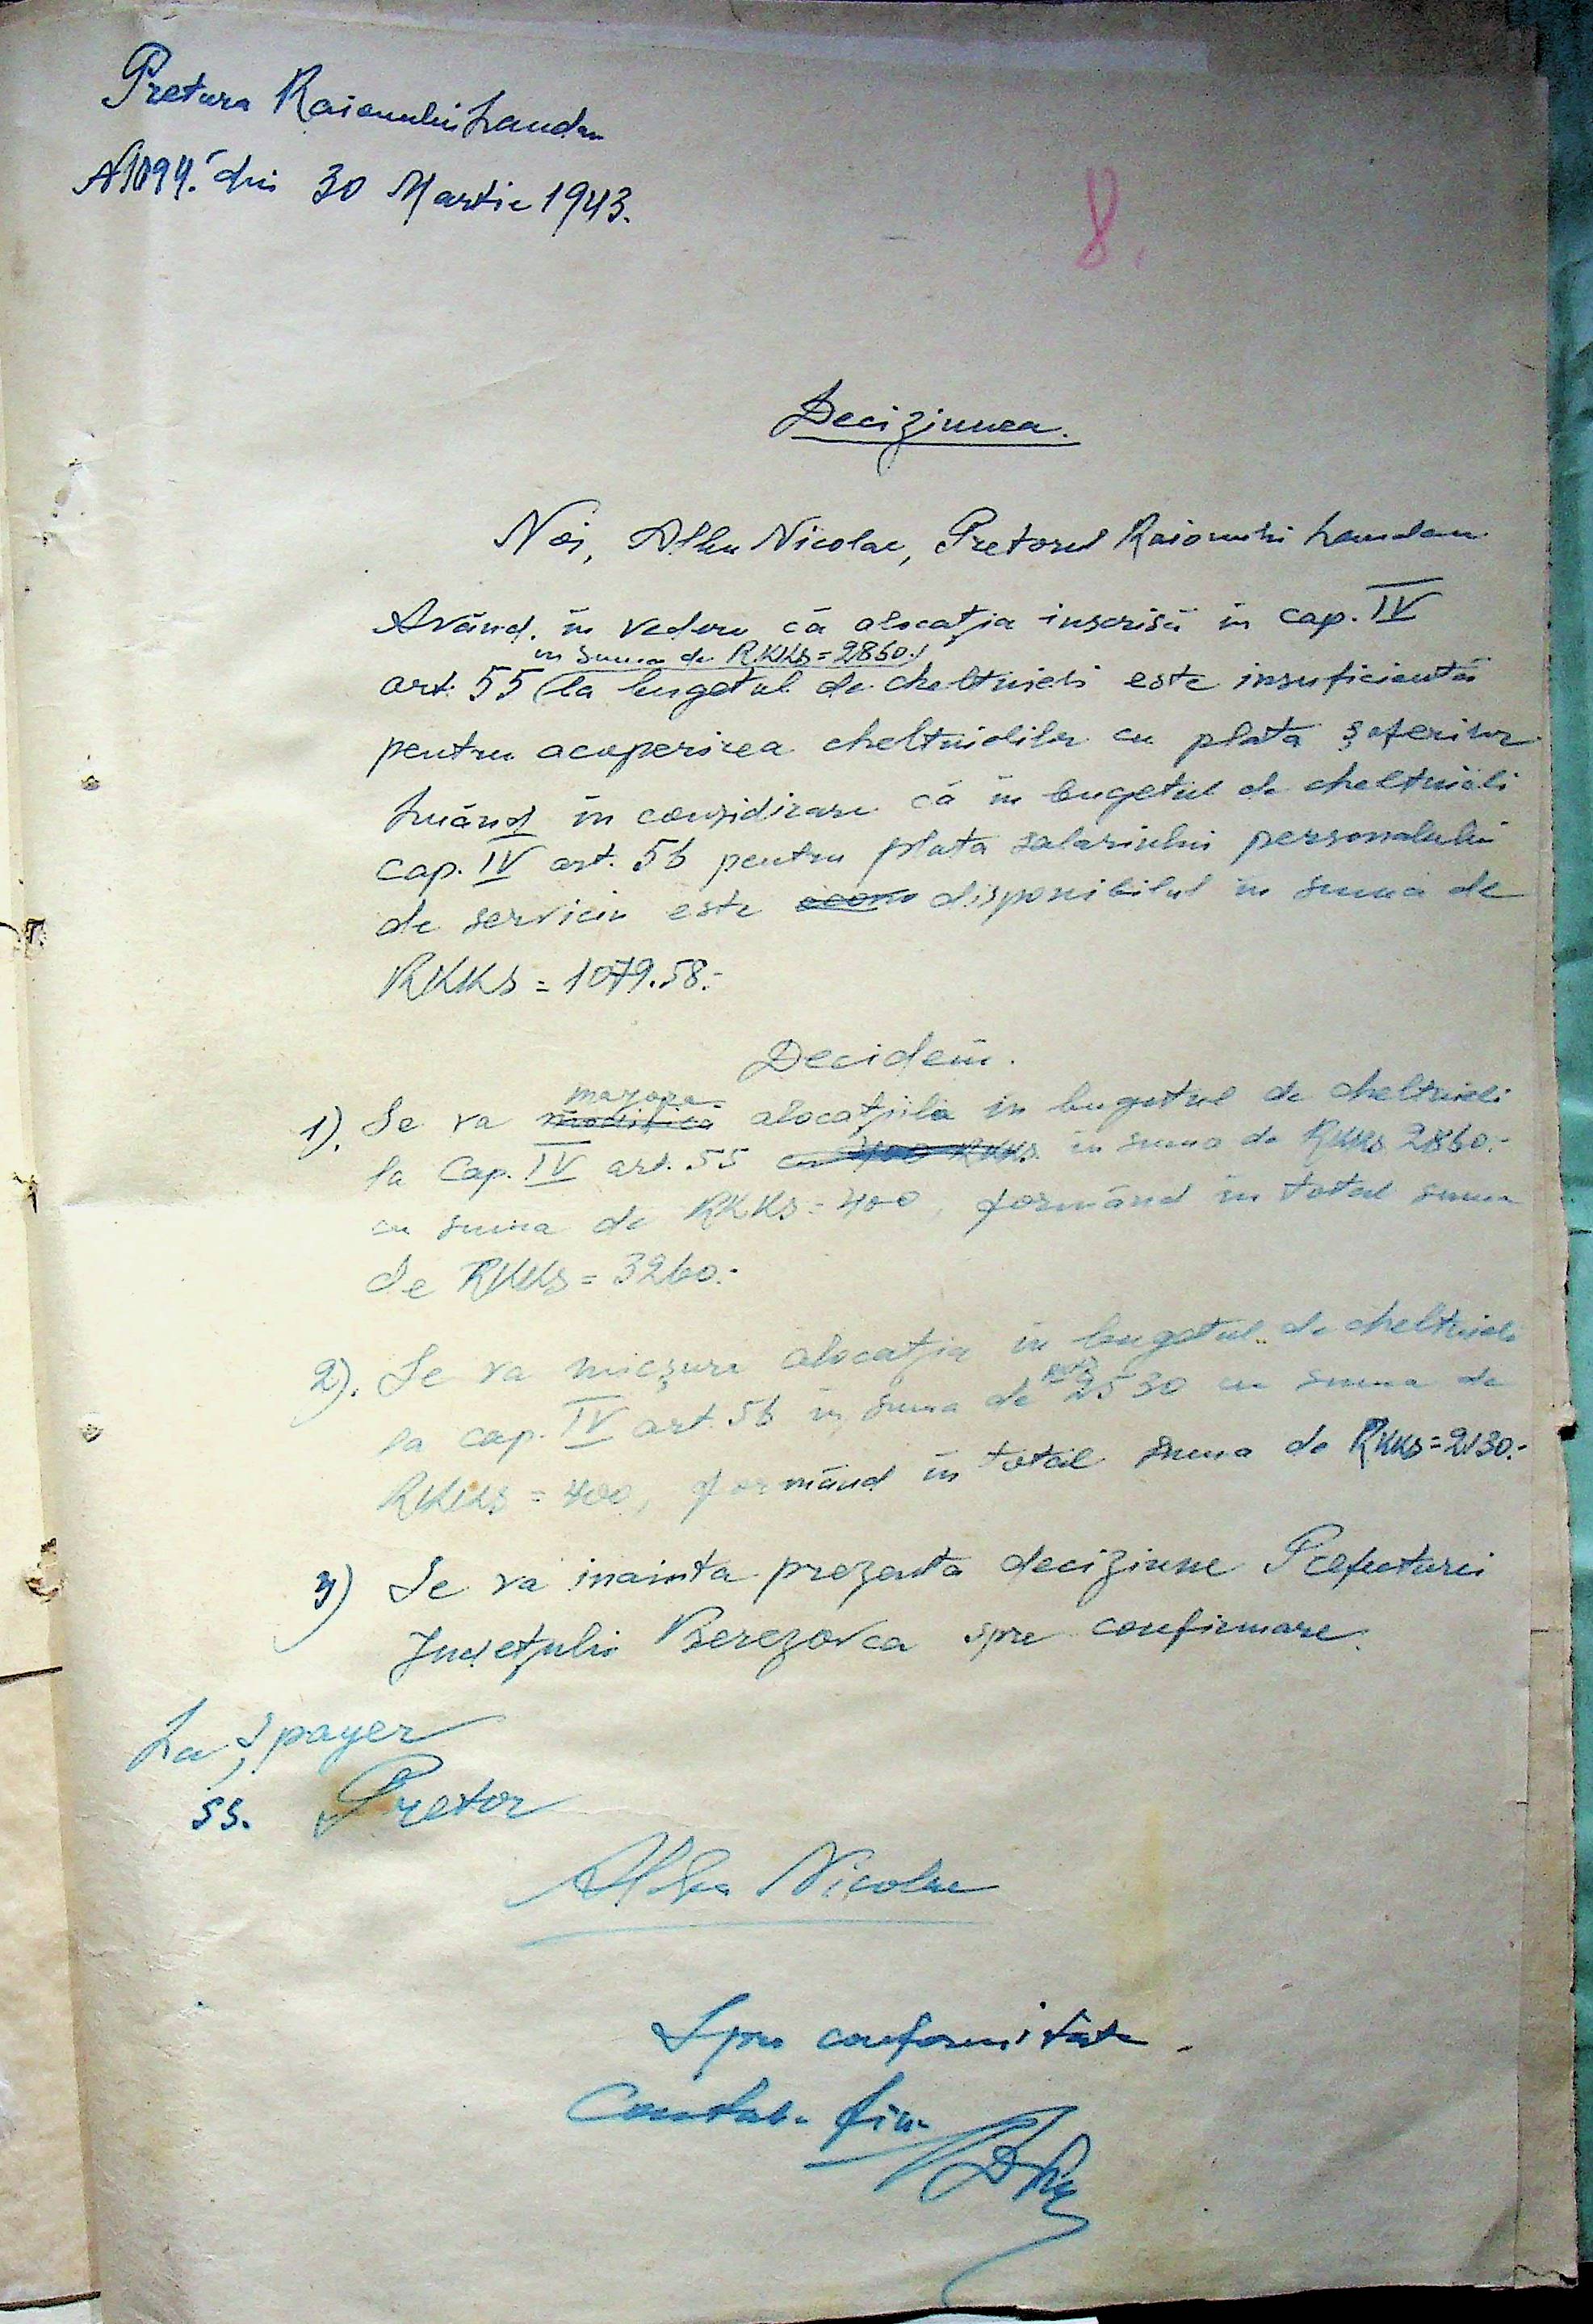 Pretura Raionului Landau
N1094. din 30 Martie 1943.
8.
Deciziunea.
Noi, Albu Nicolae, Pretorul Raionului Landau
Având în vedere că alocația inscrisă in cap. IV
in suma de RKKS=2860.
art. 55 (la bugetul de cheltuieli este insuficientă
pentru acoperirea cheltuielilor cu plata șoferilor
Luând în considirare că în bugetul de cheltuieli
cap. IV art. 56 pentru plata salariului personalului
de serviciu este disponibilul in suma de
RKKS = 1079.58.-
Decidem.
majora
1). Se va modifica alocațiila in bugetul de cheltuieli
la Cap. IV art. 55 cu 400 RKKS in suma de RKKS 2860.-
cu suma de RKKS = 400, formând in total suma
de RKKS = 3260.-
2). Se va micșura alocația in bugetul de cheltuieli
la cap. IV art. 56 in suma de 2530 cu suma de
RKKS = 400, formând in total suma de RKKS=2130.-
3) Se va inainta prezenta deciziune Prefecturei
Județului Berezovca spre confirmare.
La Șpayer
ss. Pretor
Albu Nicolae
Spre conformitate.
Contab. fin.